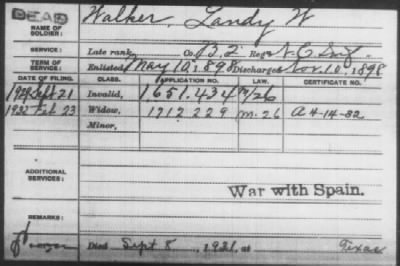 DEAD
NAME OF SOLDIER: Walker, Landy W
SERVICE: Late rank, Co. B. 2 Reg't N.C. Inf.
TERM OF SERVICE: Enlisted May 10, 1898 Discharged Nov. 10, 1898
DATE OF FILING. CLASS. APPLICATION NO. LAW. CERTIFICATE NO.
Sept 21 Invalid, 1.651.434
1932 Feb 23 Widow, 1712229 M-26 A 4-14-32
Minor,
ADDITIONAL SERVICES:
War with Spain.
REMARKS:
Died Sept 8, 1921, at Texas